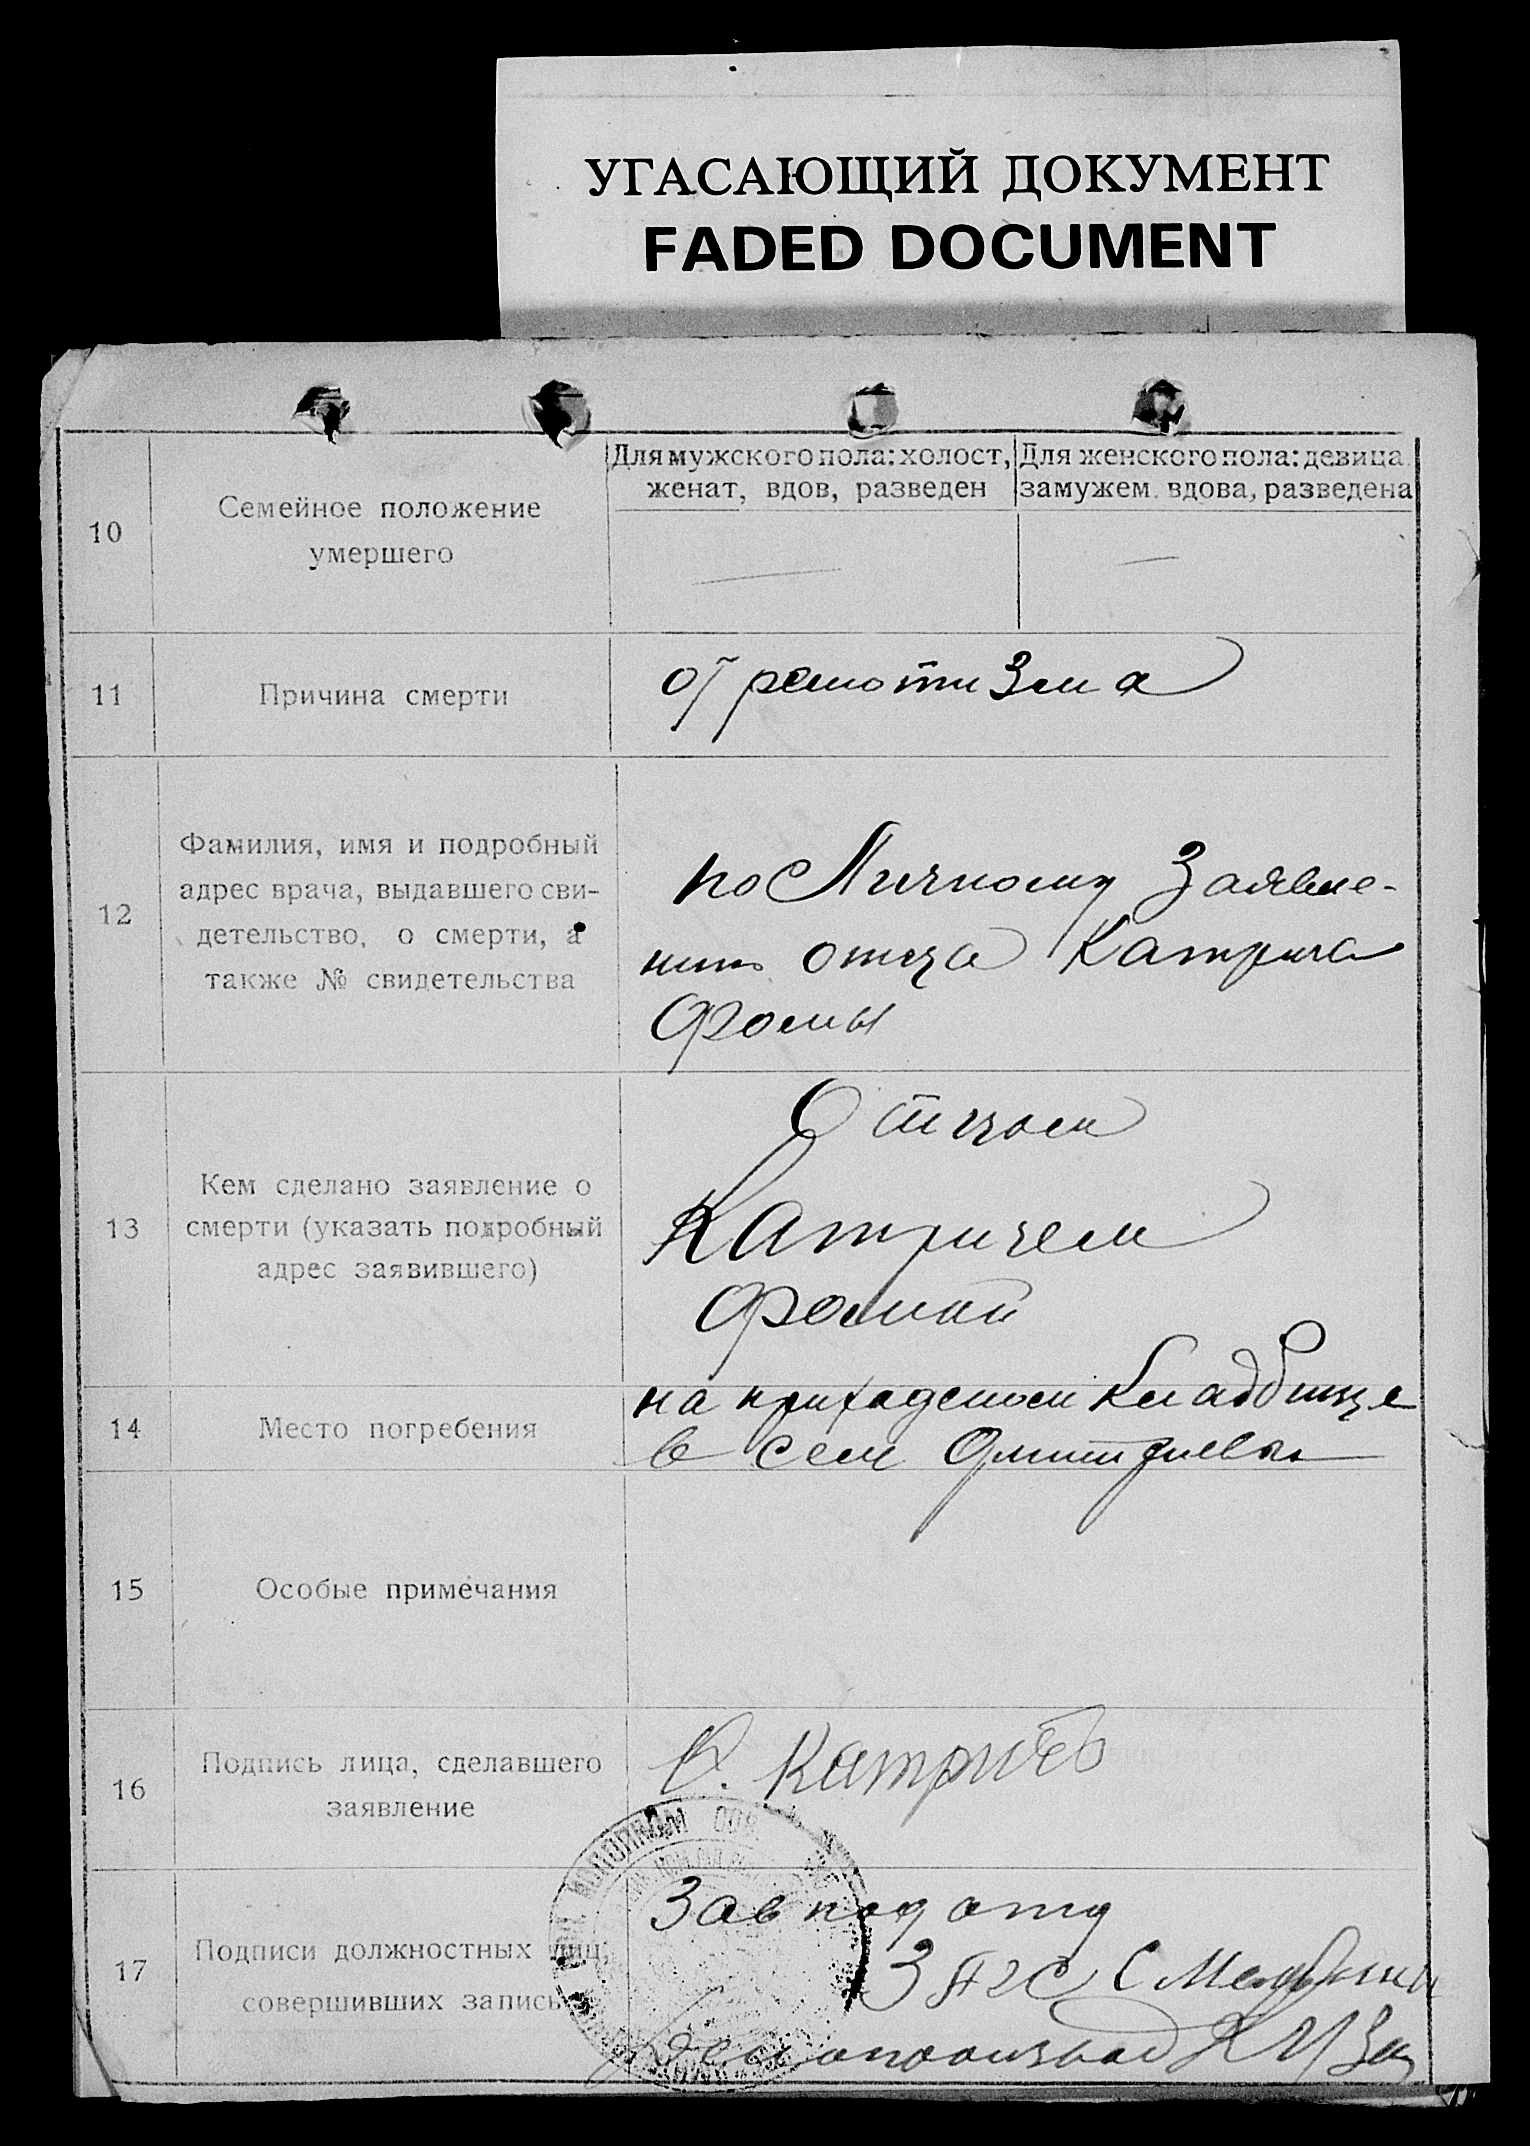 УГАСАЮЩИЙ ДОКУМЕНТ
FADED DOCUMENT
10
Семейное положение
умершего
Для мужского пола: холост,
женат, вдов, разведен
Для женского пола: девица
замужем. вдова, разведена
—
—
11
Причина смерти
от ремотизма
12
Фамилия, имя и подробный
адрес врача, выдавшего сви-
детельство, о смерти, а
также № свидетельства
по Личному Заявле-
нию отца Катрича
Фомы
13
Кем сделано заявление о
смерти (указать подробный
адрес заявившего)
Отцом
Катричем
Фомой
14
Место погребения
на приходском кладбище
в селе Дмитриевы
15
Особые примечания
16
Подпись лица, сделавшего
заявление
Катричъ
17
Подписи должностных лиц,
совершивших запись
Зав подотд
Загс
Делопроизвод